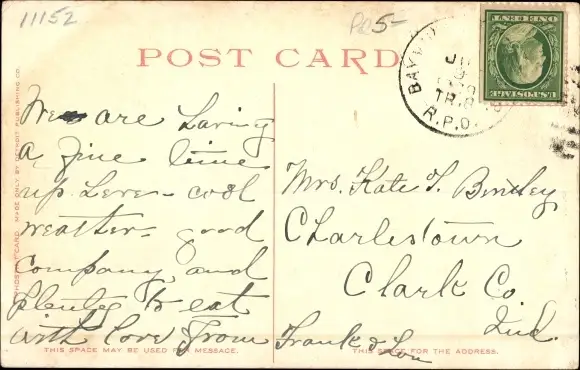 11152
5-
POST CARD
BAY
JU
9
TR.8
R.P.O.
ONE CENT
U.S. POSTAGE
"PHOSTINT CARD" MADE ONLY BY DETROIT PUBLISHING CO.
We are having
a fine time
up here - cool
weather - good
company and
plenty to eat
with love from Frank & Lou
Mrs. Kate T. Bentley
Charlestown
Clark Co.
Ind.
THIS SPACE MAY BE USED FOR MESSAGE.
THIS SPACE FOR THE ADDRESS.